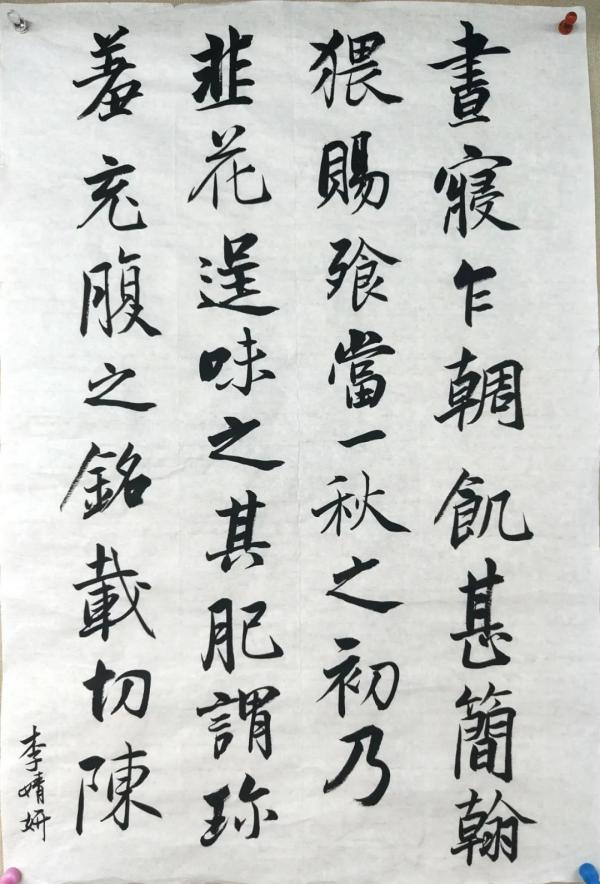 晝寢乍輖飢甚簡翰
猥賜飱當一秋之初乃
韭花逞味之其肥謂珎
羞充腹之銘載切陳
李婧妍